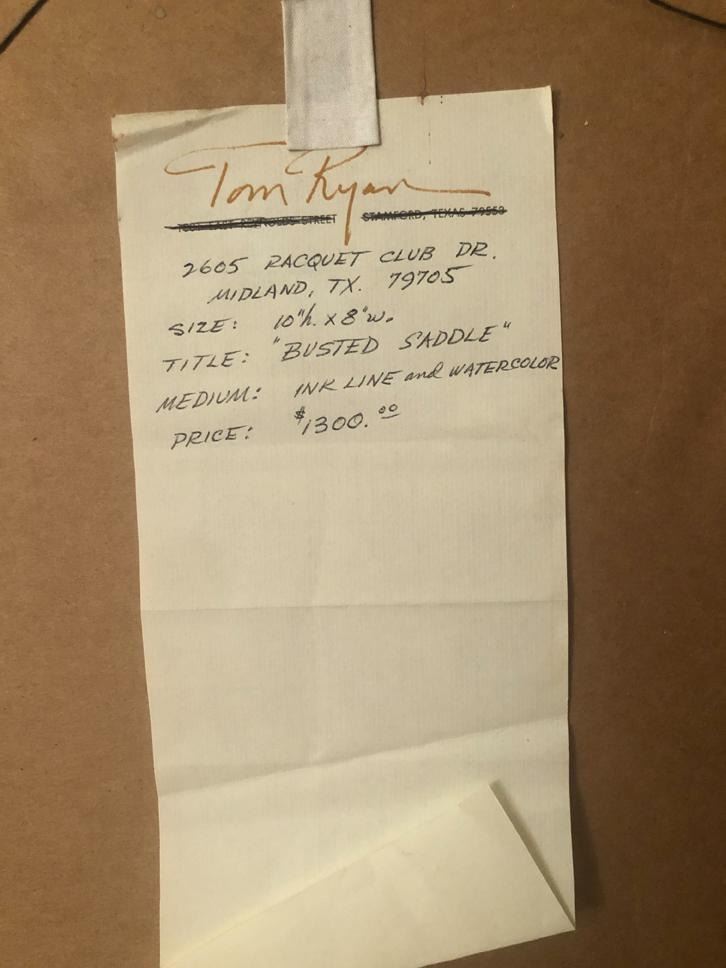 Tom Ryan
1001 EAST REYNOLDS STREET STAMFORD, TEXAS 79553
2605 RACQUET CLUB DR.
MIDLAND, TX. 79705
SIZE: 10"h. x 8"w.
TITLE: "BUSTED SADDLE"
MEDIUM: INK LINE and WATERCOLOR
PRICE: $1300.00